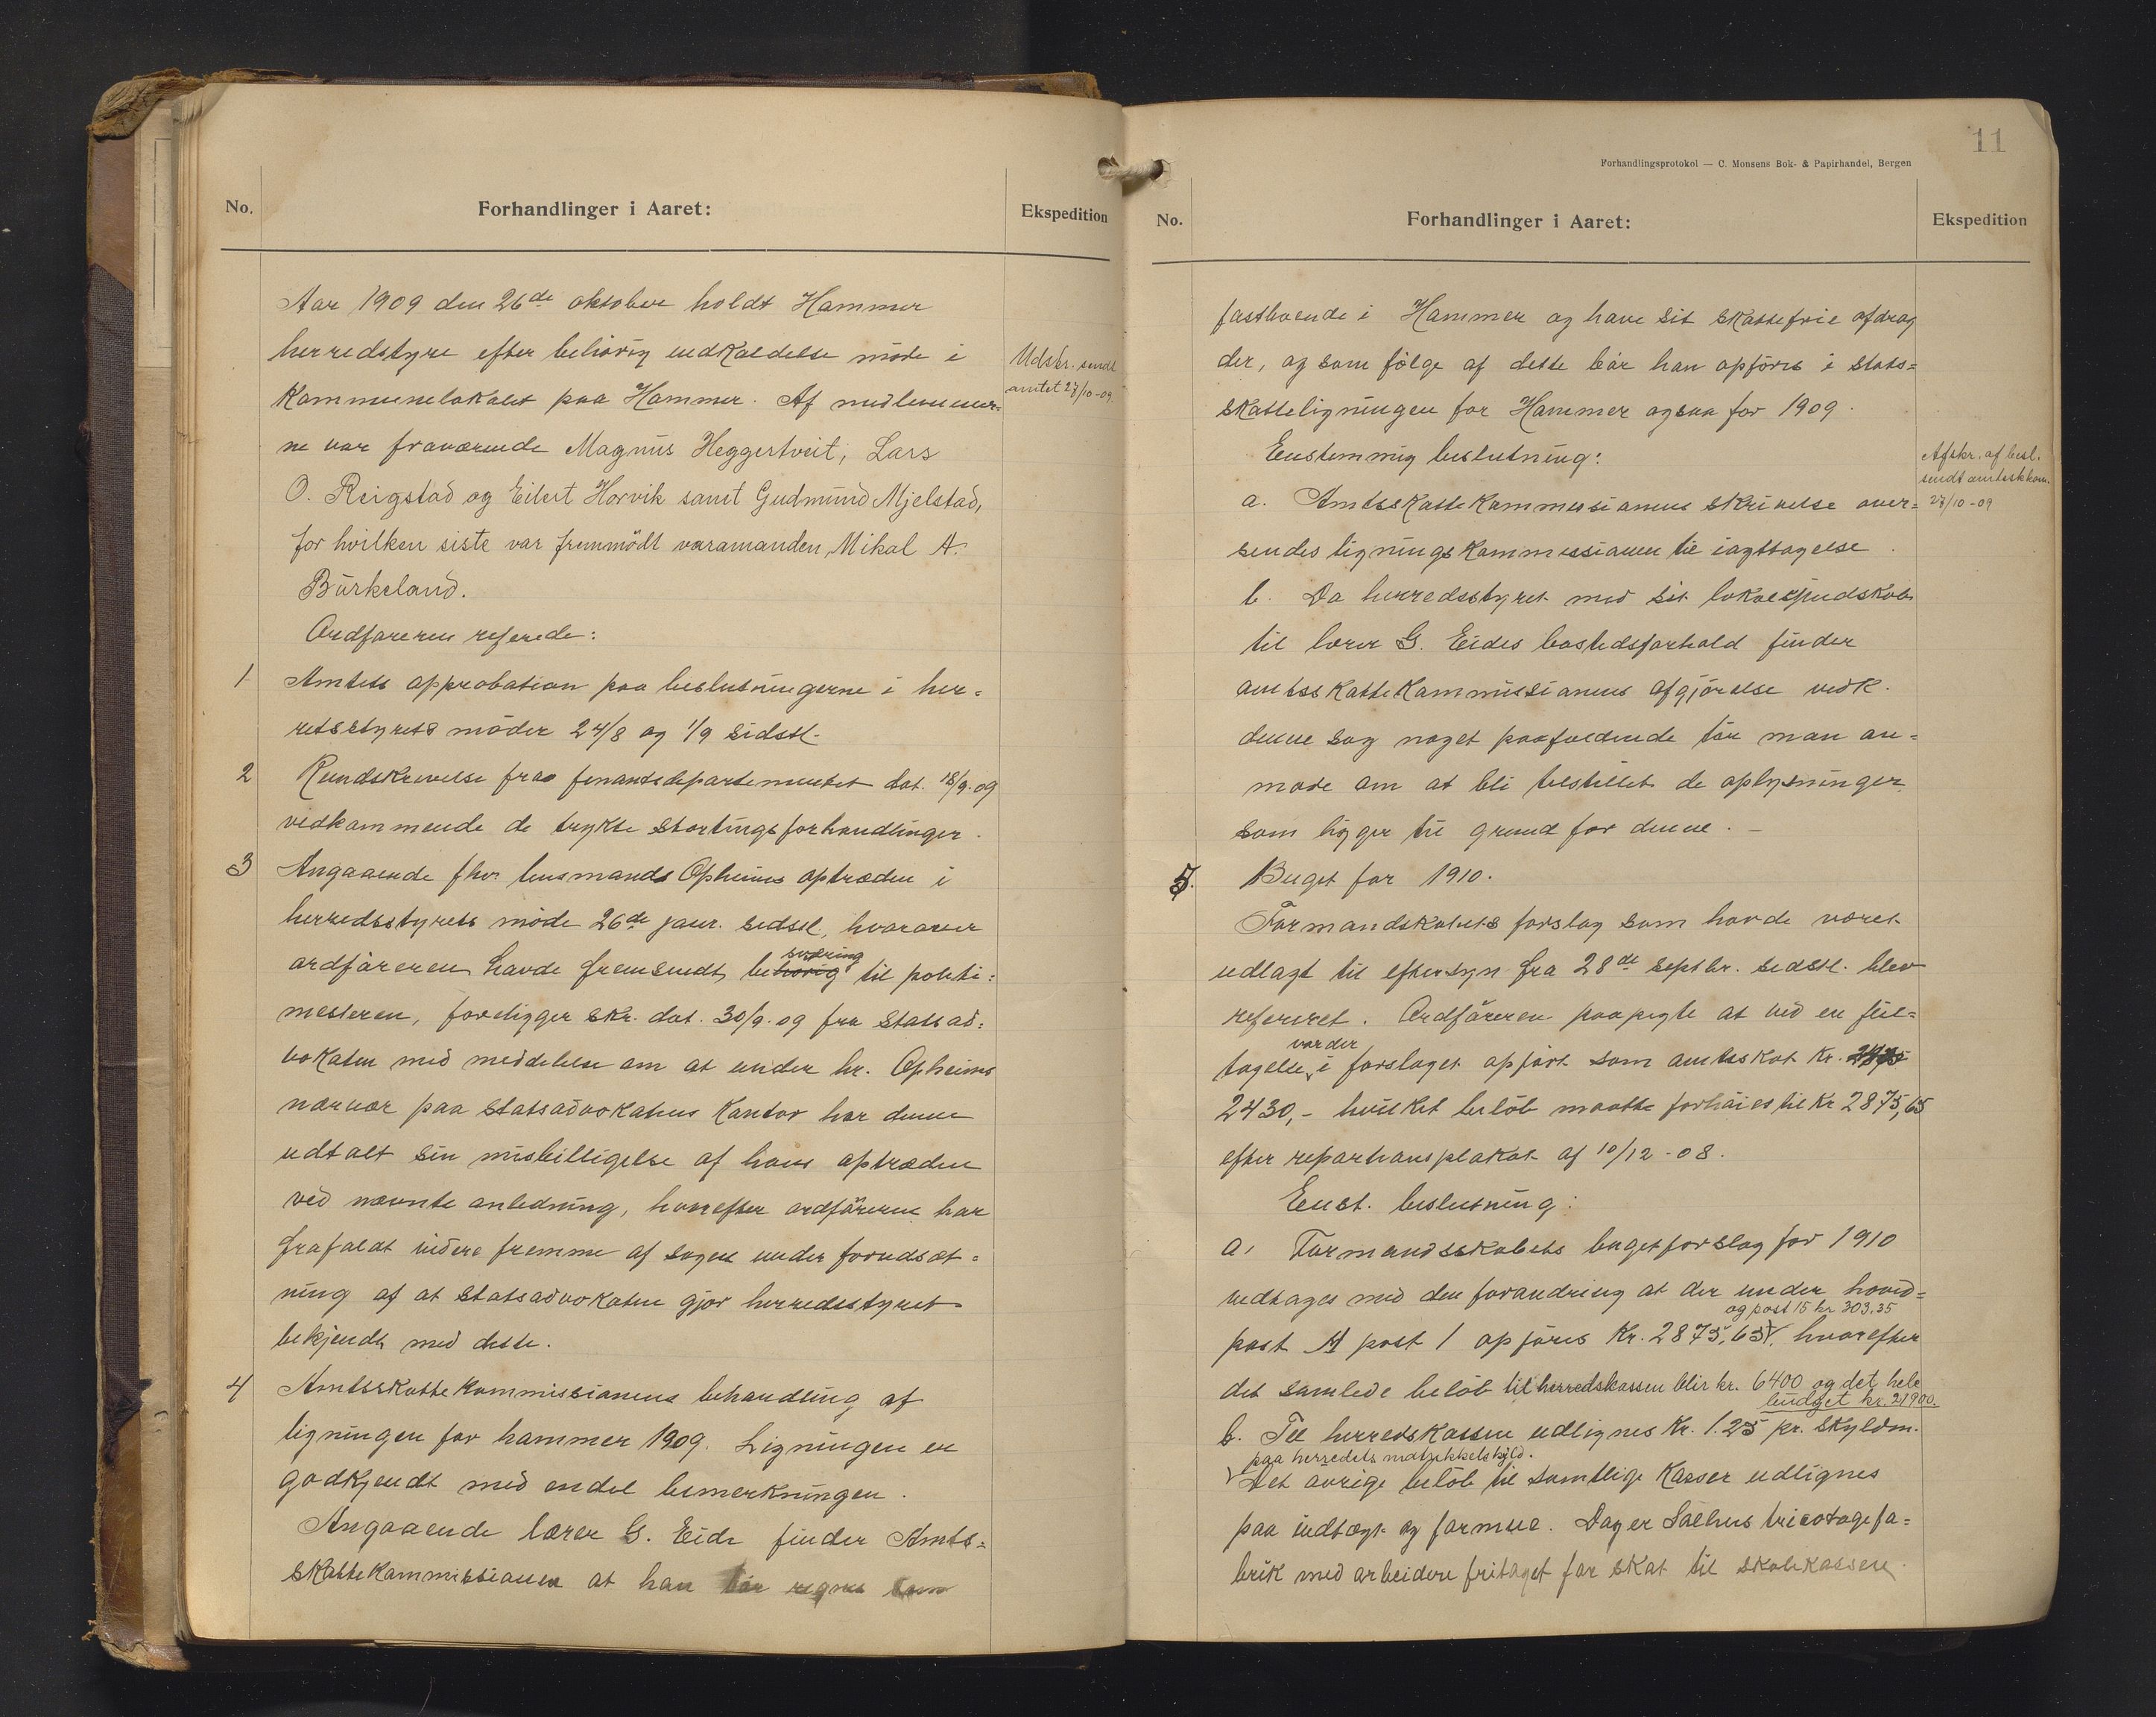 No.
Forhandlinger i Aaret:
Ekspedition
Aar 1909 den 26de oktober holdt Hammer
herredstyre efter behörig indkaldelse möde i
Kommunelokalet paa Hammer. Af medlemmer-
ne var fraværende Magnus Heggertveit, Lars
O. Reigstad og Eilert Horvik samt Gudmund Mjelstad,
for hvilken siste var fremmödt varamanden, Mikal A.
Burkeland.
Ordföreren referede:
Udskr. sendt
amtet 27/10-09.
1 Amtets approbation paa beslutningerne i her-
retsstyrets möder 24/8 og 1/9 sidstl.
2 Rundskrivelse fra finantsdepartementet dat. 18/9.09
vedkommende de trykte stortingsforhandlinger.
3 Angaaende fhv. lensmands Opheims optræden i
herredsstyrets möde 26de janr. sidstl., hvorover
sværing
ordföreren havde fremsendt behörig til politi-
mesteren, foreligger skr. dat. 30/9.09 fra Statsad-
vokaten med meddelelse om at under hr. Opheims
nærvær paa statsadvokatens kontor har denne
udtalt sin misbilligelse af hans optræden
ved nævnte anledning, hvorefter ordföreren har
frafaldt videre fremme af sagen under forudsæt-
ning af at statsadvokaten gjör herredsstyret
bekjendt med dette.
4 Amtsskattekommissionens behandling af
ligningen for hammer 1909. Ligningen er
godkjendt med endel bemerkningen.
Angaaende lærer G. Eide finder Amts-
skattekommissionen at han bör regnes som
11
Forhandlingsprotokol — C. Monsens Bok- & Papirhandel, Bergen
No.
Forhandlinger i Aaret:
Ekspedition
fastboende i Hammer og have sit skattefrie afdrag
der, og som fölge af dette bör han opföres i stats-
skatteligningen for Hammer ogsaa for 1909.
Enstemmig beslutning:
Afskr. af besl.
sendt amtsskkom.
27/10-09
a. Amtsskattekommissionens skrivelse over-
sendes ligningskommissionen til iagttagelse.
b. Da herredsstyret med sit lokalkjendskab
til lærer G. Eides bostedsforhold finder
amtsskattekommissionens afgjörelse vedk.
denne sag noget paafaldende tör man an-
mode om at bli tilstillet de oplysninger
som ligger til grund for denne. —
5. Buget for 1910.
Formandskabets forslag som havde været
udlagt til eftersyn fra 28de septbr. sidstl. blev
refereret. Ordföreren paapegte at ved en feil-
var der
tagelse, i forslaget opfört som amtsskat kr.
2430,- hvilket belöb maatte forhöies til Kr 2875,65
efter repartionsplakat af 10/12-08.
Enst. beslutning:
a. Formandsskabets bugetforslag for 1910
vedtages med den forandring at der under hoved-
og post 15 kr 303.35
post A post 1 opföres Kr. 2875,65, hvorefter
det samlede belöb til herredskassen blir kr. 6400 og det hele
budget kr. 21900.
b. Til herredskassen udlignes Kr. 1.25 pr. skyldm.
paa herredets matrikkelskyld.
Det övrige belöb til samtlige Kasser udlignes
paa indtægt og formue. Dog er Salhus tricotagefa-
brik med arbeidere fritaget for skat til skolekassen